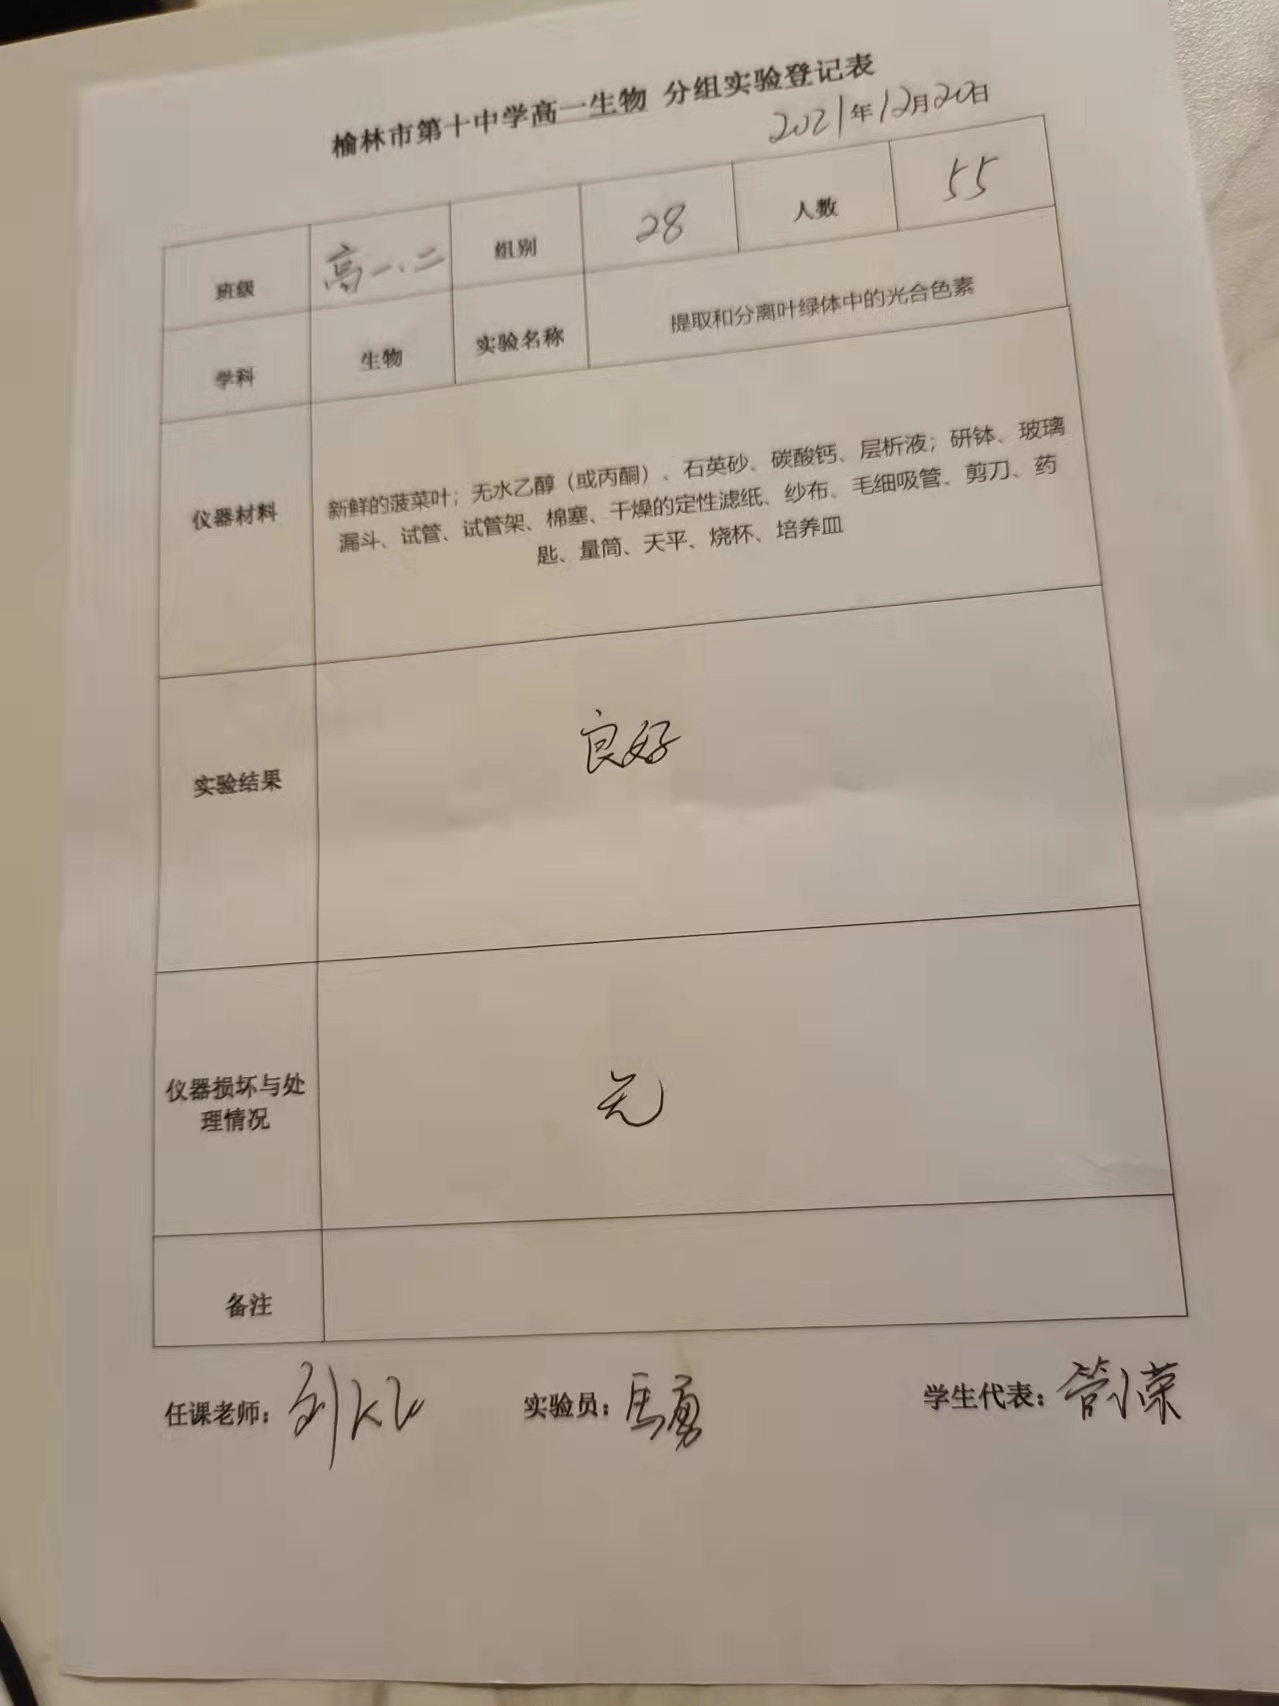 榆林市第十中学高一生物 分组实验登记表
2021年12月20日
班级 高一、二 组别 28 人数 55
学科 生物 实验名称 提取和分离叶绿体中的光合色素
仪器材料
新鲜的菠菜叶；无水乙醇（或丙酮）、石英砂、碳酸钙、层析液；研钵、玻璃
漏斗、试管、试管架、棉塞、干燥的定性滤纸、纱布、毛细吸管、剪刀、药
匙、量筒、天平、烧杯、培养皿
实验结果 良好
仪器损坏与处
理情况
无
备注
任课老师：刘 实验员：马勇 学生代表：管小荣